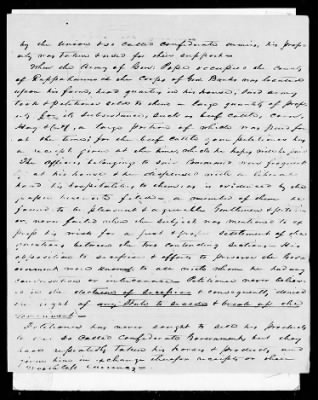 by the Union & so called Confederate armies, his prop-
erty was taken & used for their support
When the Army of Gen. Pope occupied the county
of Rappahannock the Corps of Genl Banks was located
upon his farm, head quarters in his house, said army
took & petitioner sold to them a large quantity of prop-
erty for its subsistence, such as beef cattle, corn,
Hay & a large portion of which was paid for
at the time; for the beef cattle your petitioner has
a receipt given at the time, which he hopes
The officers belonging to said Command were frequent
at his house & he dispensed with a liberal
hand his hospitalities to them, as is evidenced by the
papers herewith filed. a number of them
found to be pleasant & agreeable Gentlemen, petition-
er never failed when the subject was mentioned to ex-
press his wish for a just & proper settlement of the
questions between the two contending sections. His
opposition to secession & efforts to preserve the Gov-
ernment were known to all with whom he had any
conversation or intercourse. Petitioner never believ-
ed in the doctrine of secession & consequently denied
the right of any State to secede & break up the
government.
Petitioner has never sought to sell his products
to the so Called Confederate Government, but they
have repeatedly taken his horses & products and
given him in exchange therefor receipts or their
worthless currency.